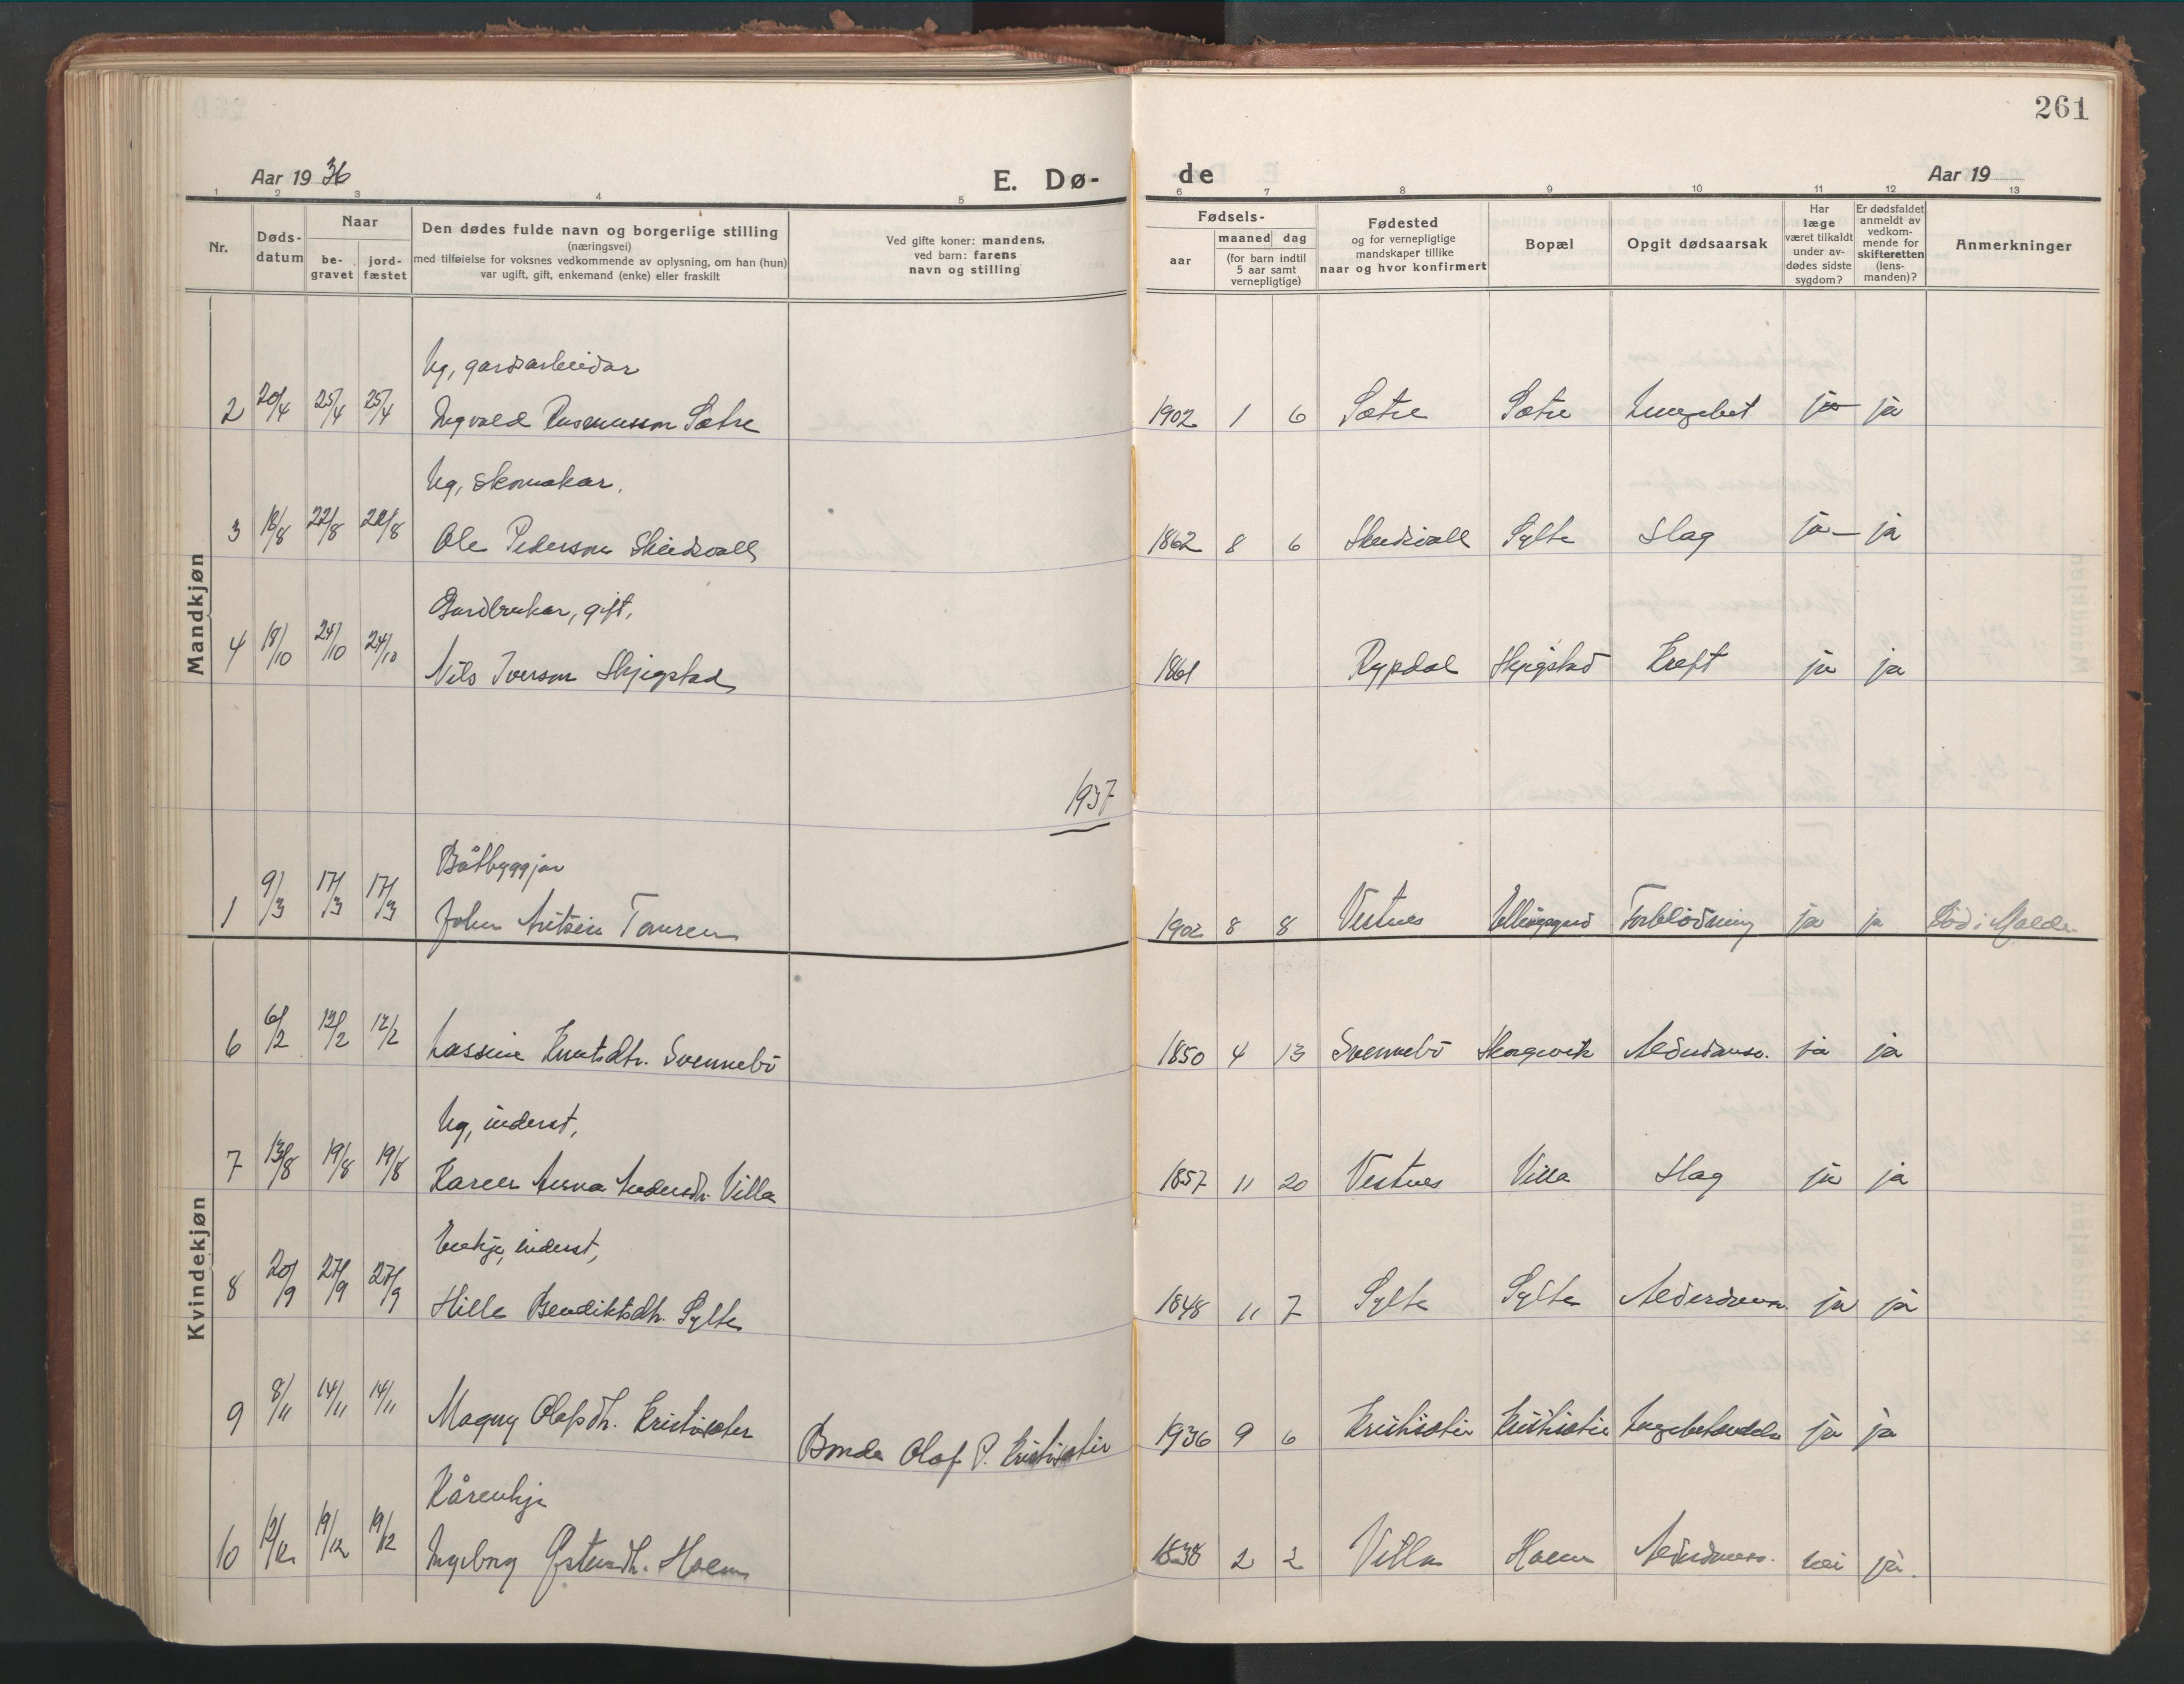 261
Aar 1936 E. Dø-
de Aar 19
1 2 3 4 5
6 7 8 9 10 11 12 13
Nr. Døds-datum Naar be-gravet jord-fæstet
Den dødes fulde navn og borgerlige stilling
(næringsvei)
med tilføielse for voksnes vedkommende av oplysning, om han (hun)
var ugift, gift, enkemand (enke) eller fraskilt
Ved gifte koner: mandens,
ved barn: farens
navn og stilling
Fødsels-
aar maaned dag
(for barn indtil
5 aar samt
vernepligtige)
Fødested
og for vernepligtige
mandskaper tillike
naar og hvor konfirmert
Bopæl
Opgit dødsaarsak
Har
læge
været tilkaldt
under av-
dødes sidste
sygdom?
Er dødsfaldet
anmeldt av
vedkom-
mende for
skifteretten
(lens-
manden)?
Anmerkninger
Mandkjøn
Ug, gardsarbeidar
2 20/4 25/4 25/4 Ingvald Rasmusson Sætre 1902 1 6 Sætre Sætre ja ja
Ug, skomakar.
3 18/8 22/8 22/8 Ole Pederson 1862 8 6 Sylte Slag ja – ja
Gardbrukar, gift,
4 18/10 24/10 24/10 Nils Iverson Skjegstad 1861 Rypdal Skjegstad Kreft ja ja
1937
Båtbyggjar
1 9/3 17/3 17/3 John 1902 8 8 Vestnes Forblødning ja ja Død i Molde
Kvindekjøn
6 6/2 12/2 12/2 Lassine Knutsdtr. Svennebö 1850 4 13 Svennebö ja ja
Ug, inderst,
7 13/8 19/8 19/8 Karen Anna Andersdtr. Villa 1857 11 20 Vestnes Villa Slag ja ja
Enkje, inderst,
8 20/9 27/9 27/9 Hille Bendiktsdtr. Sylte 1848 11 7 Sylte Sylte ja ja
9 8/11 14/11 14/11 Magny Olafsdtr. Kristisæter Bonde Olaf P. Kristisæter 1936 9 6 Kristisæter Kristisæter ja ja
Kårenkje
10 19/12 19/12 Ingeborg Østensdtr. Hoem 1838 2 2 Villa Hoem nei ja.